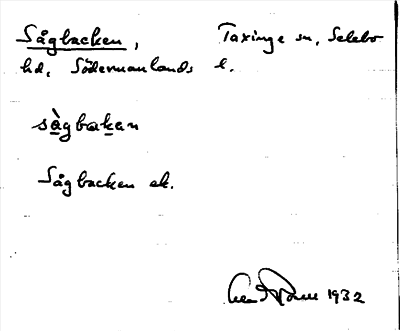 Sågbacken, Taxinge sn, Selebo
hd, Södermanlands l.
sàgbakan
Sågbacken ek.
1932